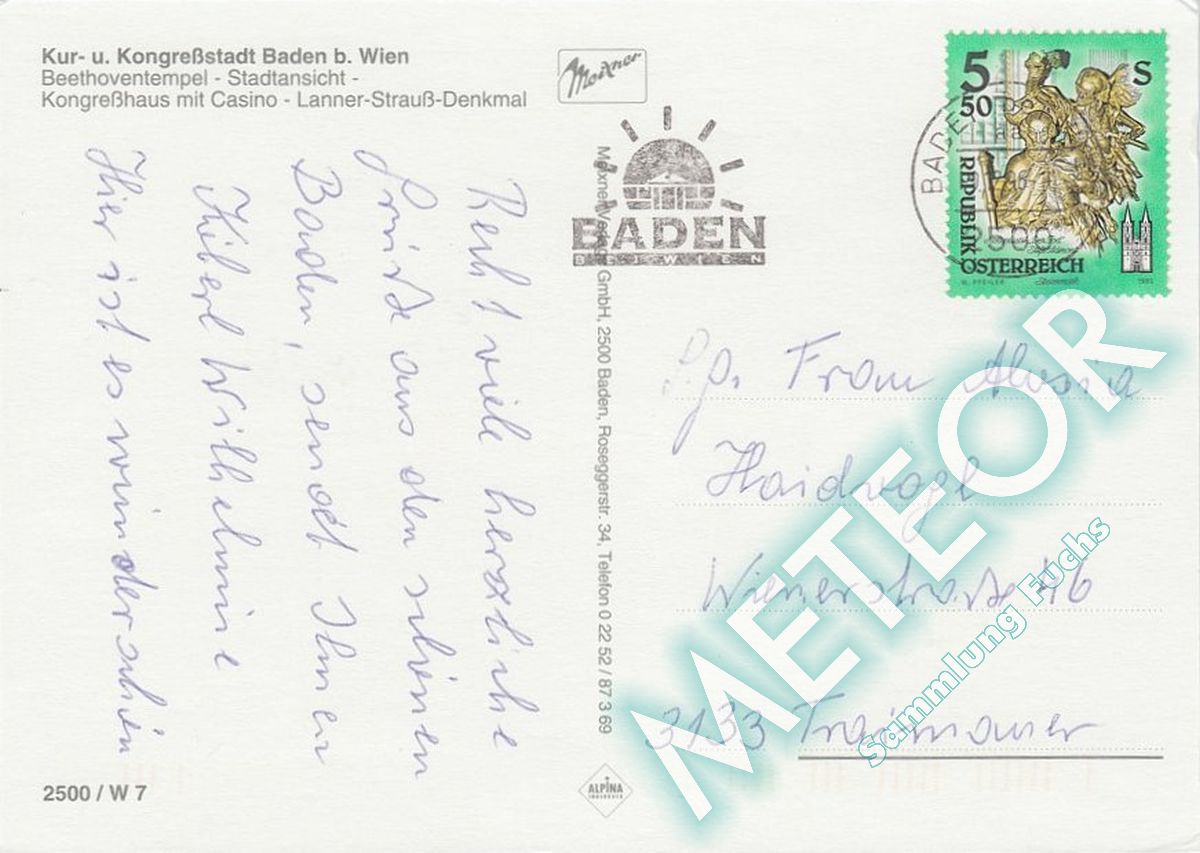 Kur- u. Kongreßstadt Baden b. Wien
Beethoventempel - Stadtansicht -
Kongreßhaus mit Casino - Lanner-Strauß-Denkmal
Meixner
BADEN
BEI WIEN
5 S
50
REPUBLIK
ÖSTERREICH
BADEN
2500
Recht viele herzliche
Grüße aus den schönen
Baden, sendet Ihnen
Wilhelmine
Hier ist es wunderschön
Meixner Verlag GmbH, 2500 Baden, Roseggerstr. 34, Telefon 0 22 52 / 87 3 69
P.p. Frau Aloisia
Haidvogl
Wienerstraße 46
3133 Traismauer
METEOR
Sammlung Fuchs
2500 / W 7
ALPINA
INNSBRUCK